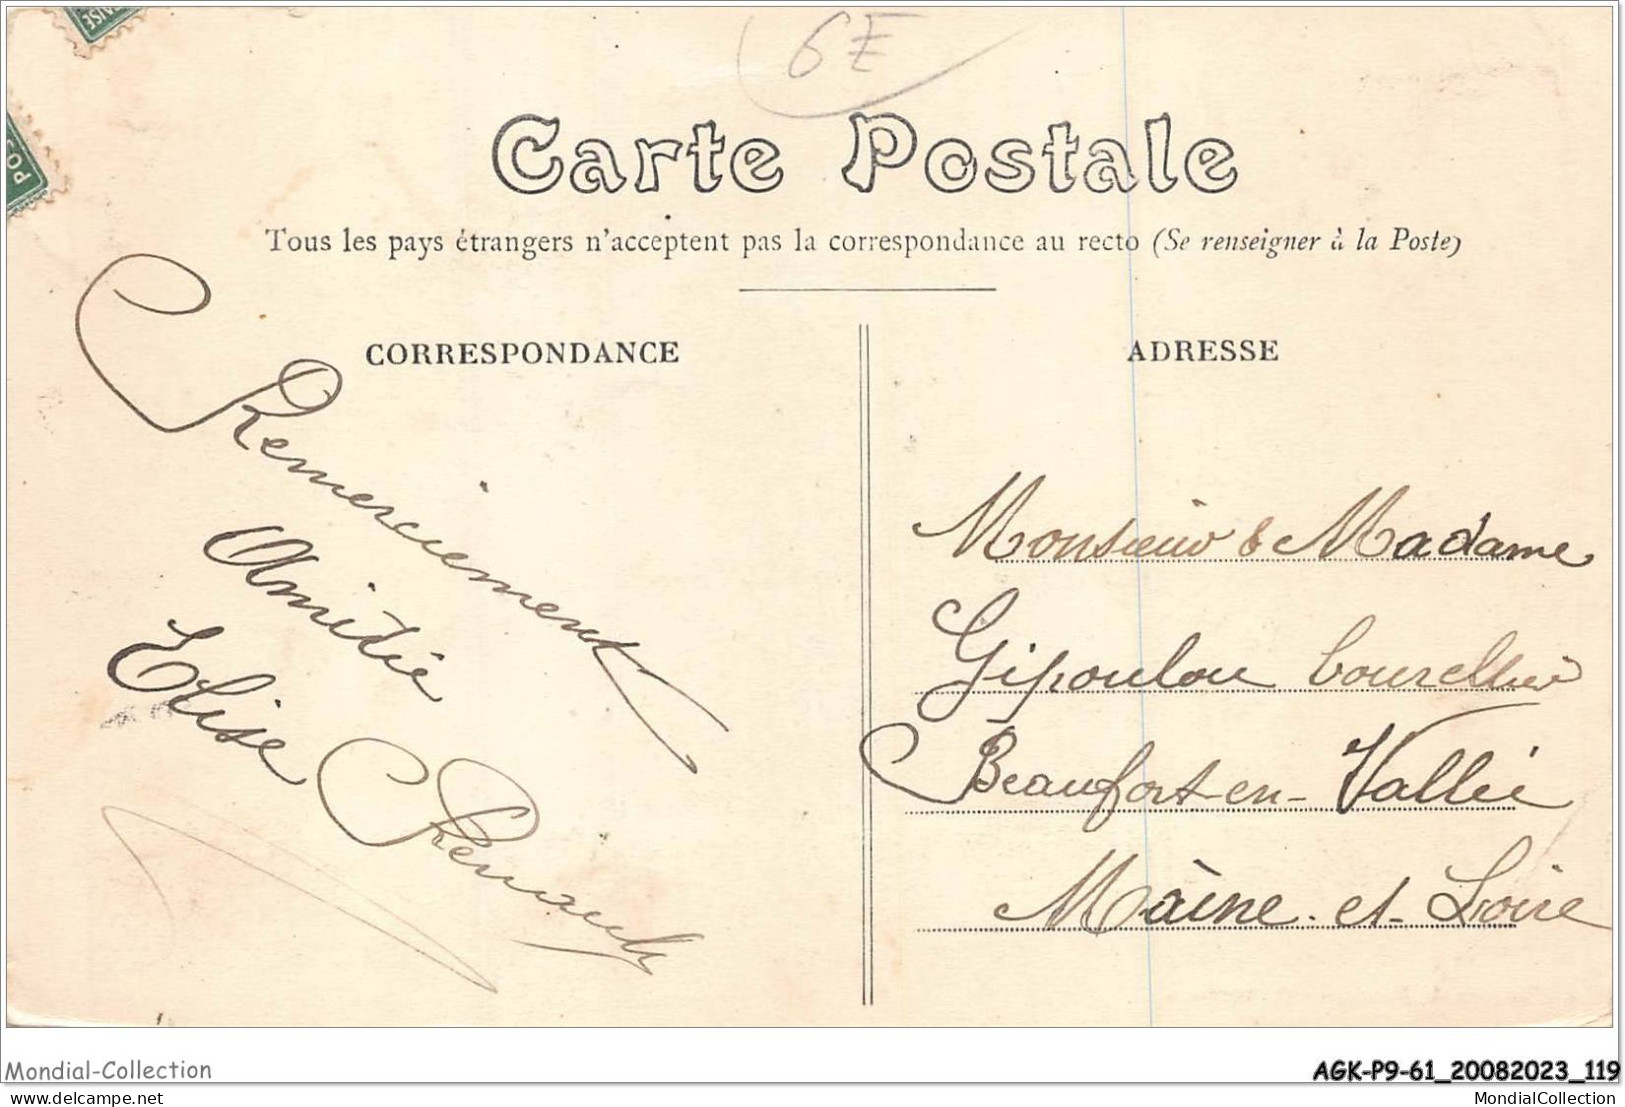 6E
Carte Postale
Tous les pays étrangers n'acceptent pas la correspondance au recto (Se renseigner à la Poste)
CORRESPONDANCE
Remerciements
Amitié
Elise Renault
ADRESSE
Monsieur & Madame
Gipoulou Bourellier
Beaufort-en-Vallée
Maine-et-Loire
Mondial-Collection
AGK-P9-61_20082023_119
delcampe.net
MondialCollection